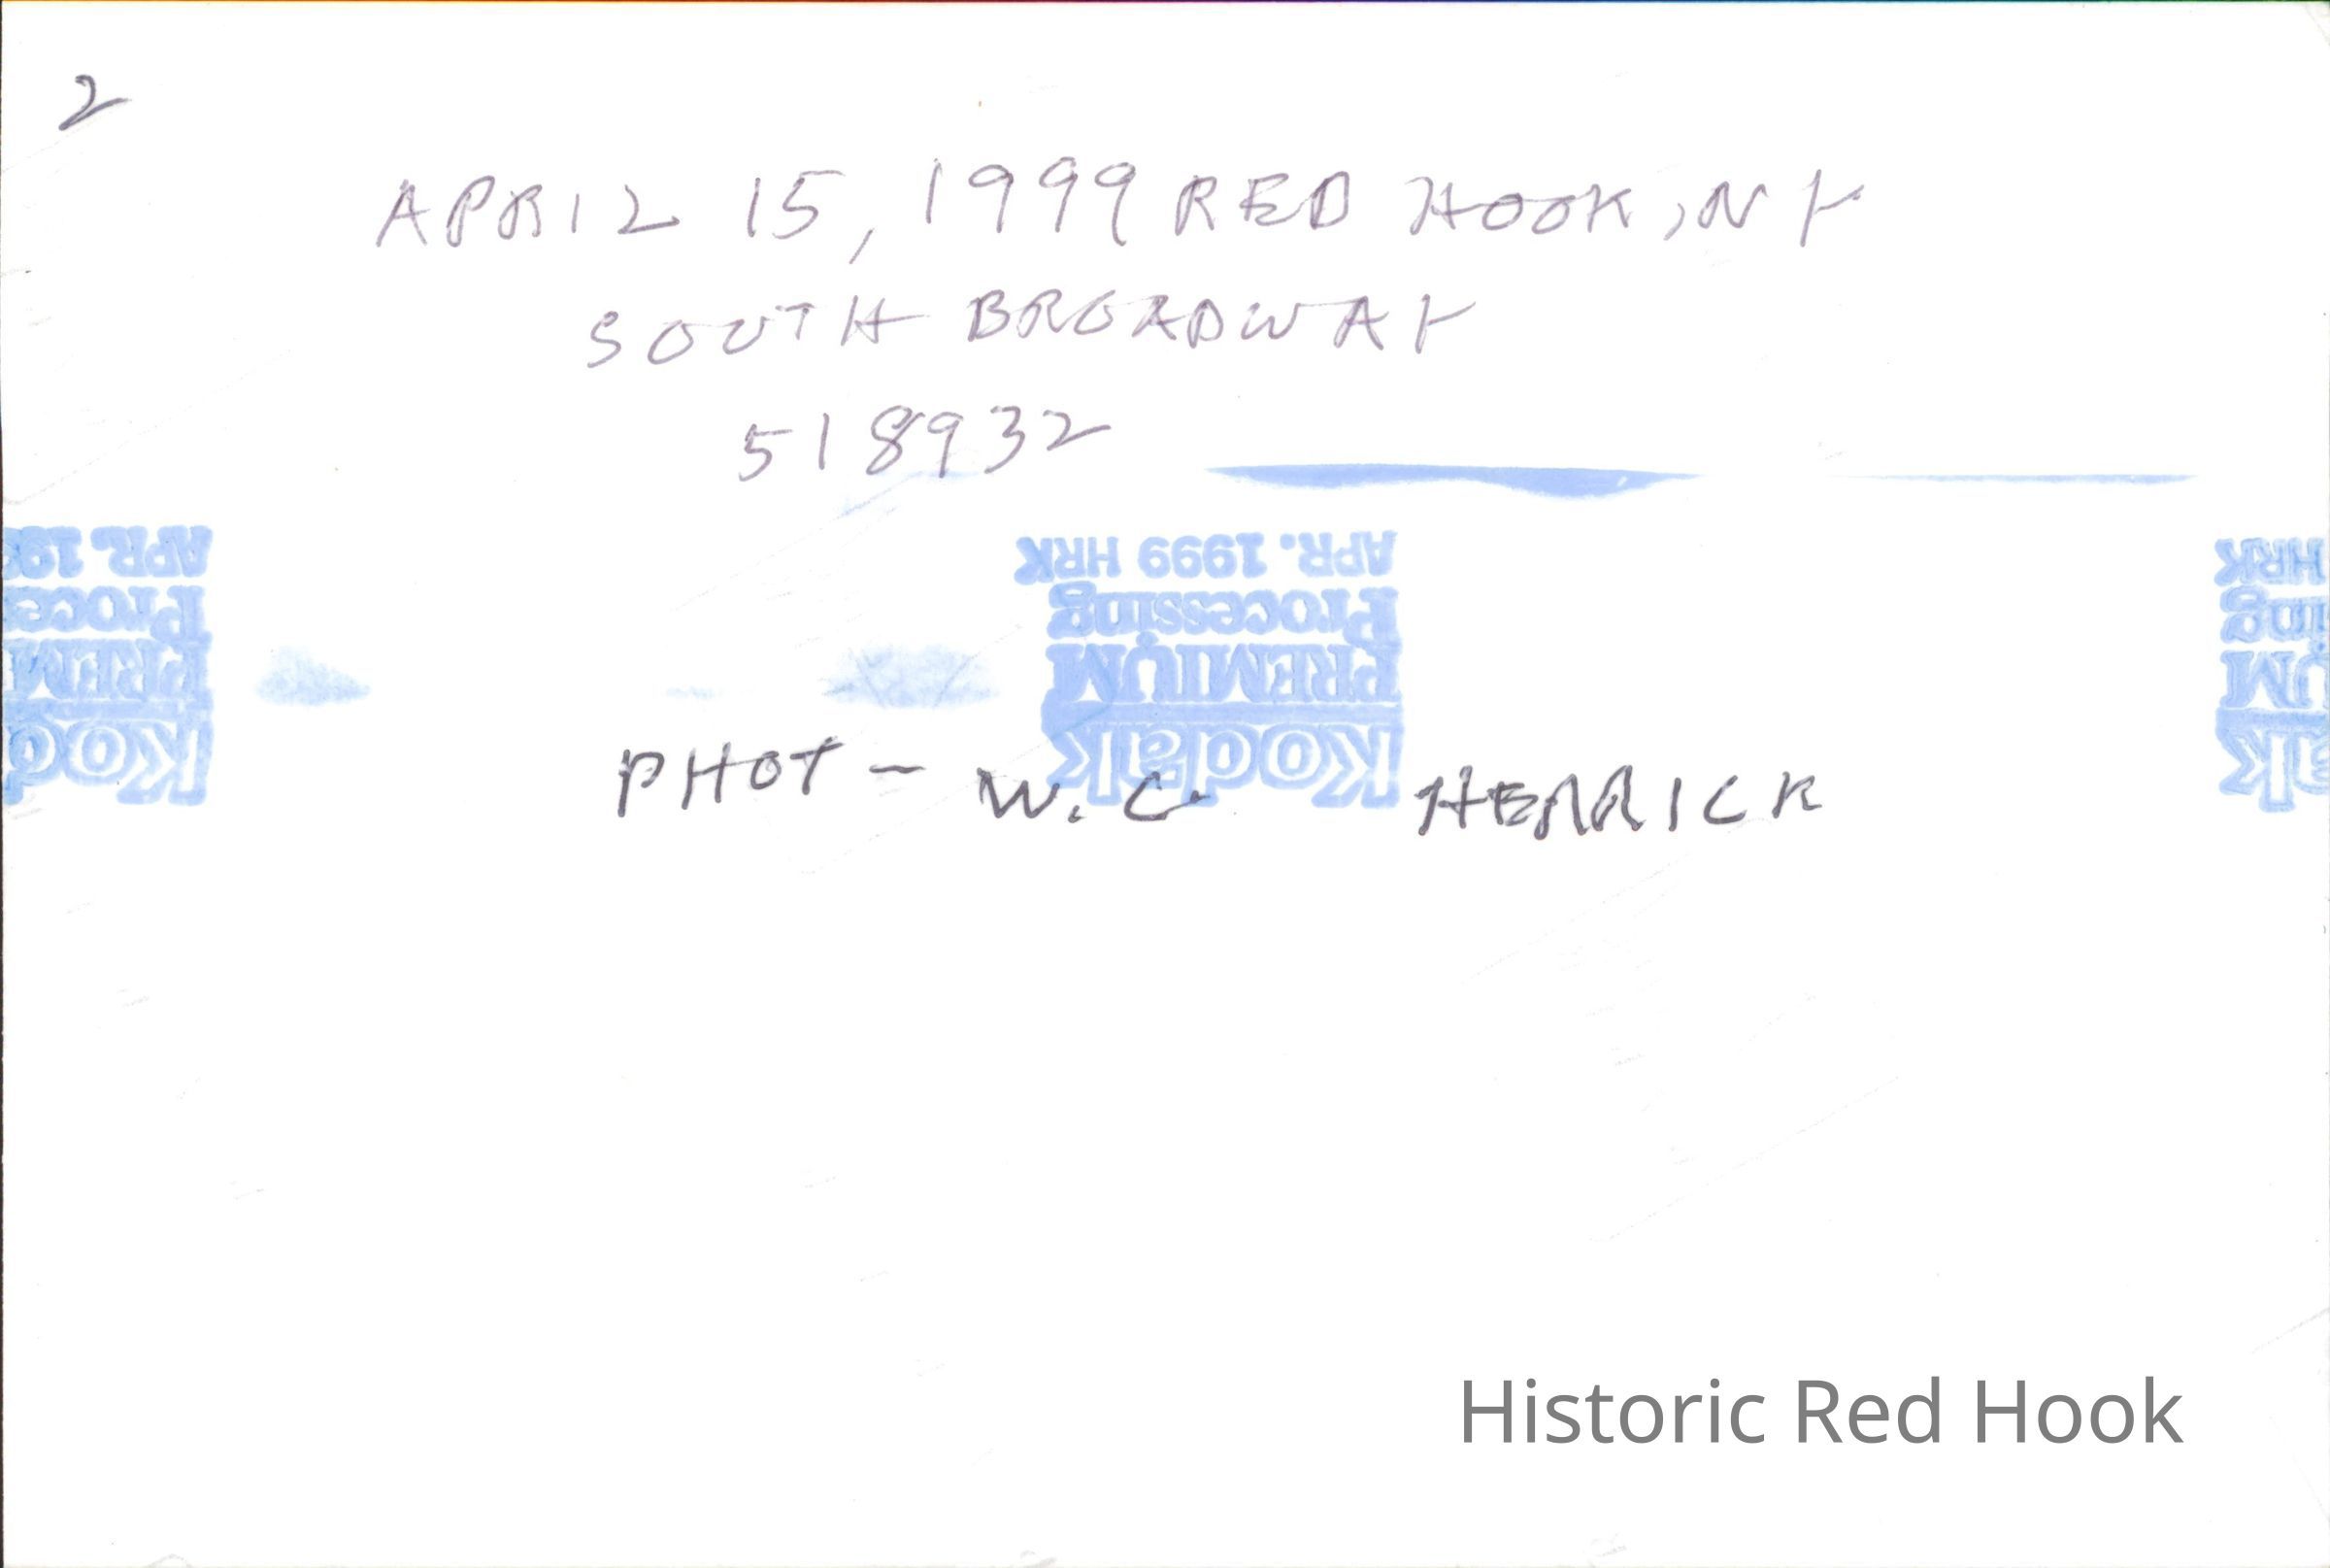 2
APRIL 15, 1999 RED HOOK, NY
SOUTH BROADWAY
518932
APR. 199
Proces
PREM
Kod
APR. 1999 HRK
Processing
PREMIUM
Kodak
HRK
ing
UM
ak
PHOT - W. C. HERRICK
Historic Red Hook